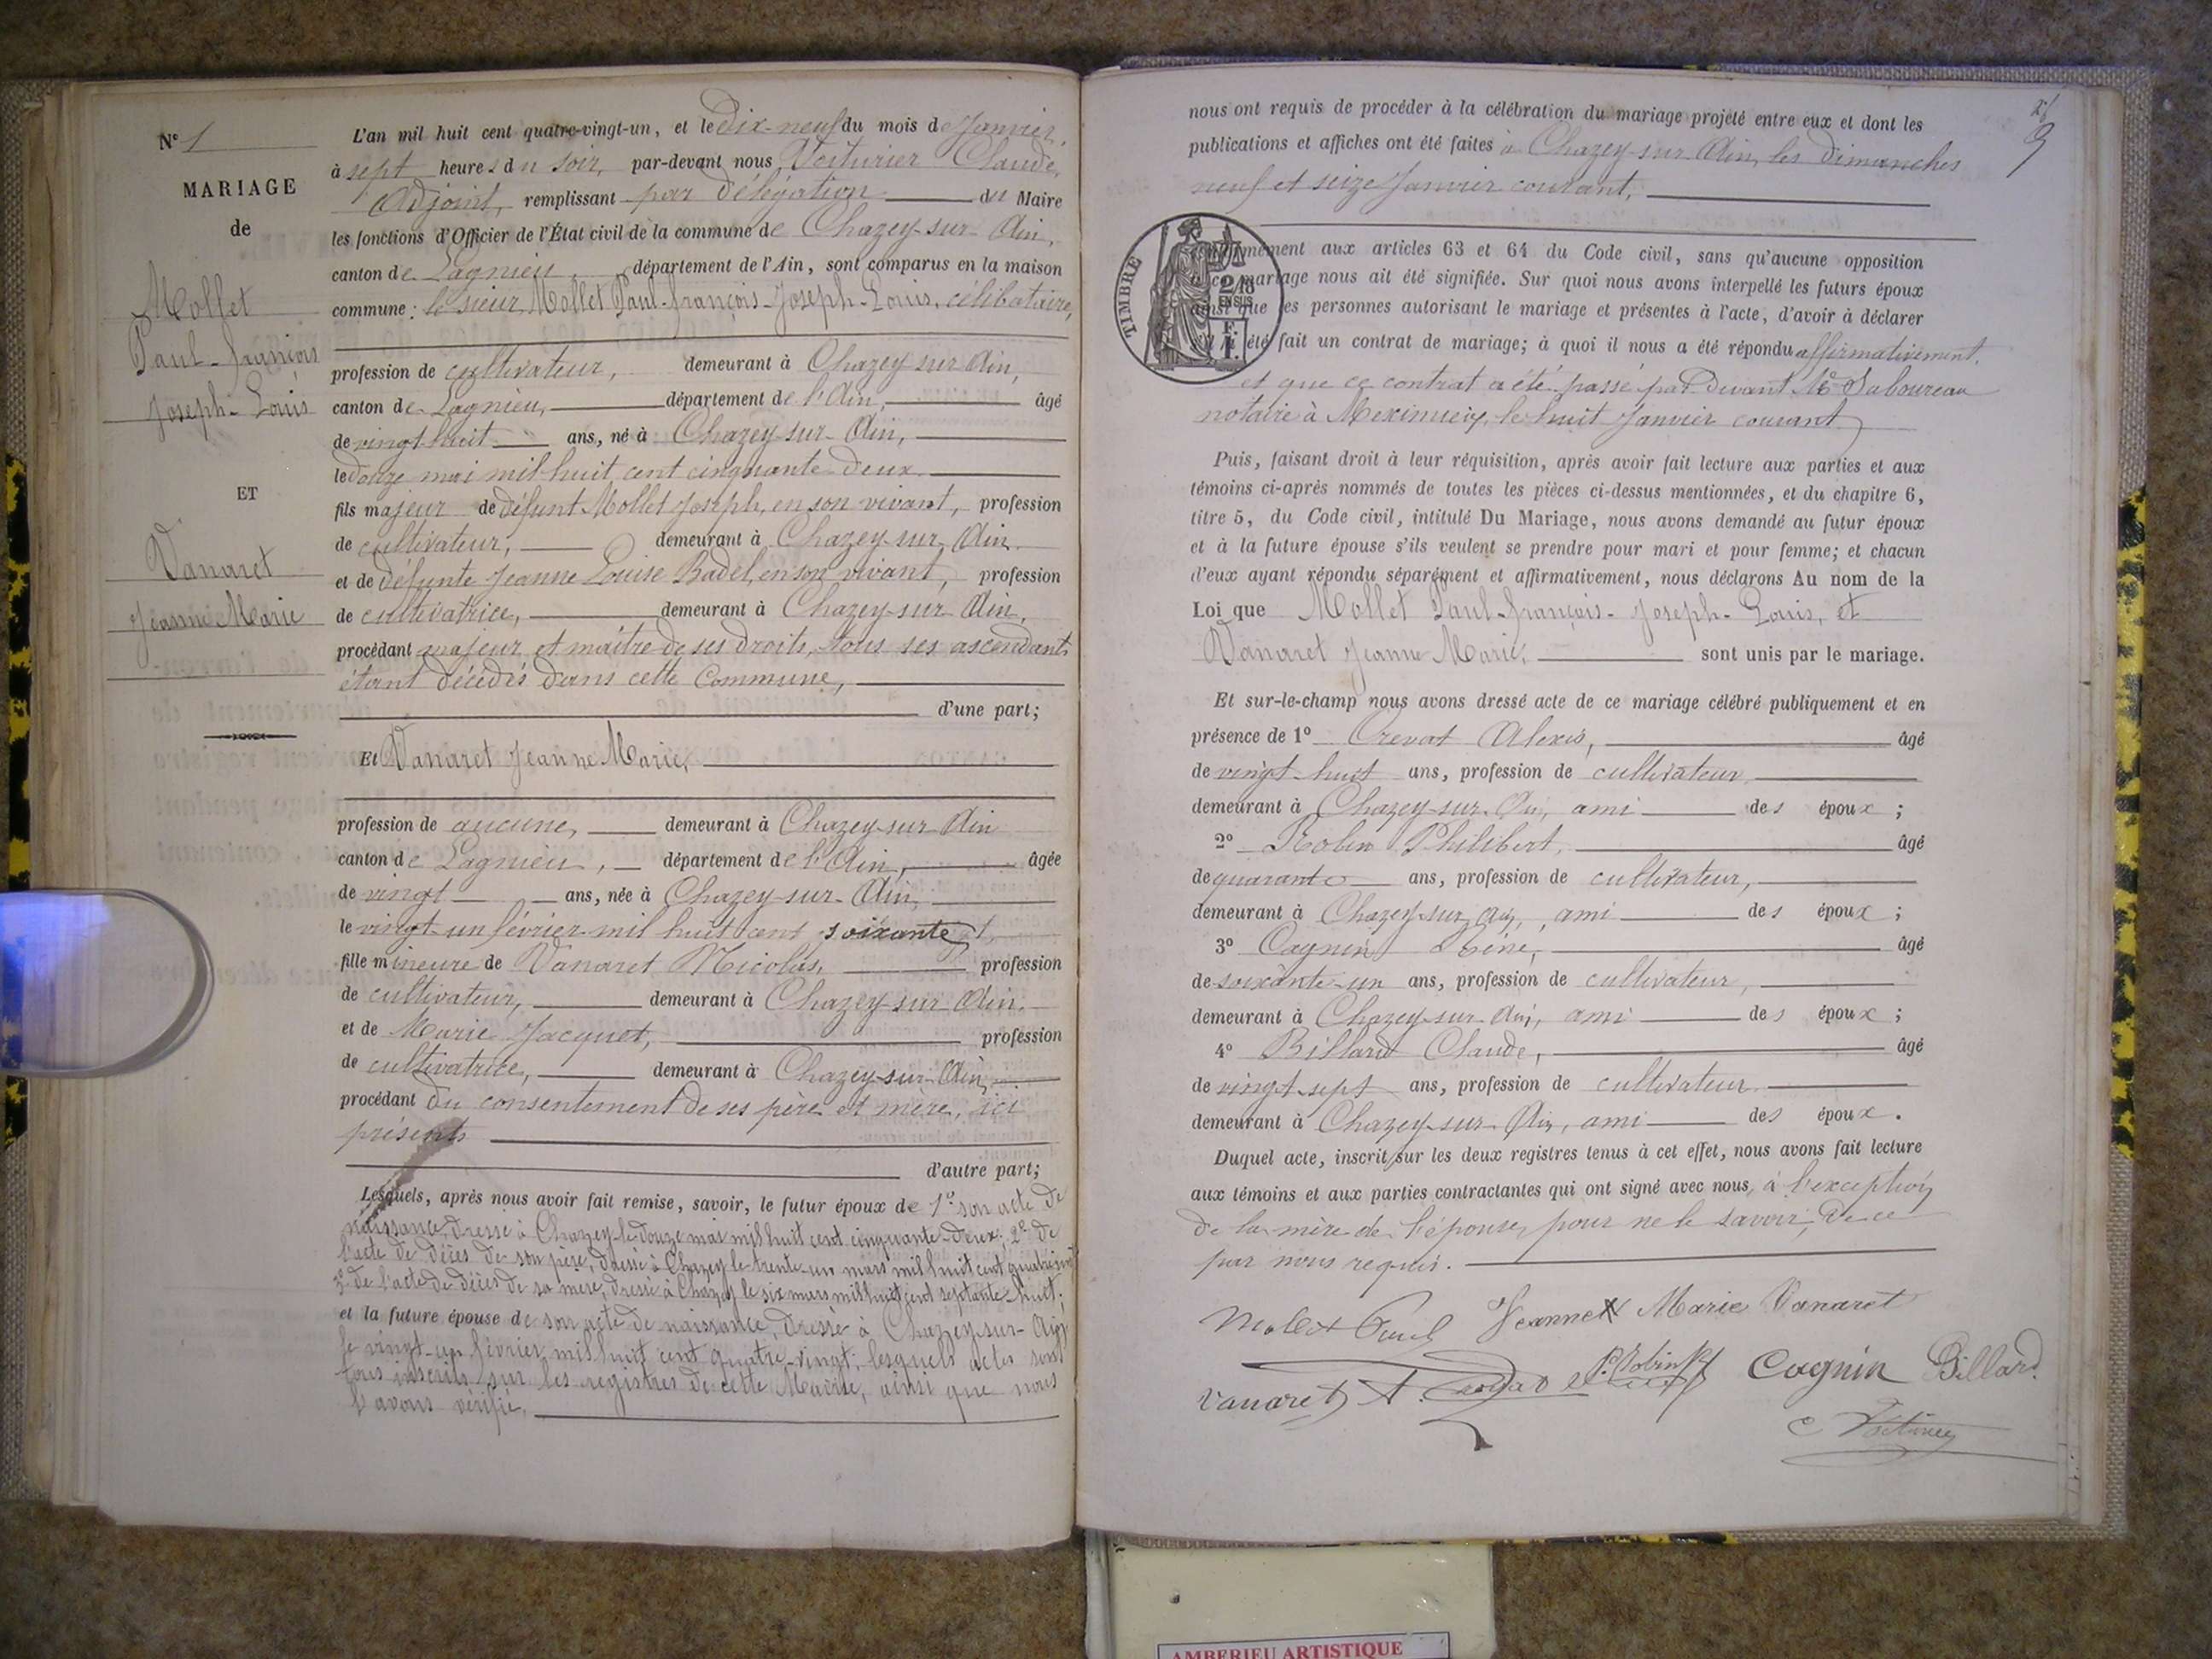 N° 1
MARIAGE
de
Mollet
Paul-françois
Joseph-Louis
ET
Vanaret
Jeanne Marie
L'an mil huit cent quatre-vingt-un, et le Dix-neuf du mois de Janvier,
à sept heures du soir, par-devant nous Voiturier Claude,
Adjoint, remplissant par délégation du Maire
les fonctions d'Officier de l'État civil de la commune de Chazey-sur-Ain,
canton de Lagnieu, département de l'Ain, sont comparus en la maison
commune : le sieur Mollet Paul-françois-Joseph-Louis, célibataire,
profession de cultivateur, demeurant à Chazey sur Ain,
canton de Lagnieu, département de l'Ain, âgé
de vingt huit ans, né à Chazey-sur-Ain,
le douze mai mil huit cent cinquante deux
fils majeur de défunt Mollet Joseph, en son vivant, profession
de cultivateur, demeurant à Chazey-sur-Ain
et de défunte Jeanne Louise Badel, en son vivant, profession
de cultivatrice, demeurant à Chazey-sur Ain,
procédant majeur et maître de ses droits, tous ses ascendants
étant décédés dans cette Commune,
d'une part;
Et Vanaret Jeanne Marie,
profession de aucune, demeurant à Chazey-sur Ain
canton de Lagnieu, département de l'Ain, âgée
de vingt ans, née à Chazey-sur-Ain,
le vingt-un février mil huit cent soixante
fille mineure de Vanaret Nicolas, profession
de cultivateur, demeurant à Chazey-sur Ain.
et de Marie Jacquet, profession
de cultivatrice, demeurant à Chazey-sur-Ain,
procédant du consentement de ses père et mère, ici
présents
d'autre part;
Lesquels, après nous avoir fait remise, savoir, le futur époux de 1° son acte de
naissance, dressé à Chazey le douze mai mil huit cent cinquante-deux; 2° de
l'acte de décès de son père, dressé à Chazey le trente-un mars mil huit cent
3° de l'acte de décès de sa mère, dressé à Chazey le six mars mil huit cent septante-huit;
et la future épouse de son acte de naissance, dressé à Chazey-sur-Ain
le vingt-un février mil huit cent quatre-vingt; lesquels actes sont
tous inscrits sur les registres de cette Mairie, ainsi que nous
l'avons vérifié,
9
nous ont requis de procéder à la célébration du mariage projeté entre eux et dont les
publications et affiches ont été faites à Chazey-sur Ain, les dimanches
neuf et seize Janvier courant,
TIMBRE
2/10
EN SUS
F.
ment aux articles 63 et 64 du Code civil, sans qu'aucune opposition
à ce mariage nous ait été signifiée. Sur quoi nous avons interpellé les futurs époux
ainsi que les personnes autorisant le mariage et présentes à l'acte, d'avoir à déclarer
été fait un contrat de mariage; à quoi il nous a été répondu affirmativement.
et que ce contrat a été passé par devant Me Saboureau
notaire à Meximieux, le huit Janvier courant
Puis, faisant droit à leur réquisition, après avoir fait lecture aux parties et aux
témoins ci-après nommés de toutes les pièces ci-dessus mentionnées, et du chapitre 6,
titre 5, du Code civil, intitulé Du Mariage, nous avons demandé au futur époux
et à la future épouse s'ils veulent se prendre pour mari et pour femme; et chacun
d'eux ayant répondu séparément et affirmativement, nous déclarons Au nom de la
Loi que Mollet Paul-françois-Joseph-Louis, et
Vanaret Jeanne Marie, sont unis par le mariage.
Et sur-le-champ nous avons dressé acte de ce mariage célébré publiquement et en
présence de 1° Crevat Alexis, âgé
de vingt-huit ans, profession de cultivateur
demeurant à Chazey-sur-Ain, ami des époux ;
2° Philibert, âgé
de quarante ans, profession de cultivateur,
demeurant à Chazey-sur Ain, ami des époux ;
3° Cagnin Réné, âgé
de soixante-un ans, profession de cultivateur,
demeurant à Chazey-sur-Ain, ami des époux ;
4° Billard Claude, âgé
de vingt-sept ans, profession de cultivateur
demeurant à Chazey-sur-Ain, ami des époux.
Duquel acte, inscrit sur les deux registres tenus à cet effet, nous avons fait lecture
aux témoins et aux parties contractantes qui ont signé avec nous, à l'exception
de la mère de l'épouse, pour ne le savoir, de ce
par nous requis.
Molet Paul Jeanne Marie Vanaret
Vanaret A. Cagnin Billard
AMBERIEU ARTISTIQUE